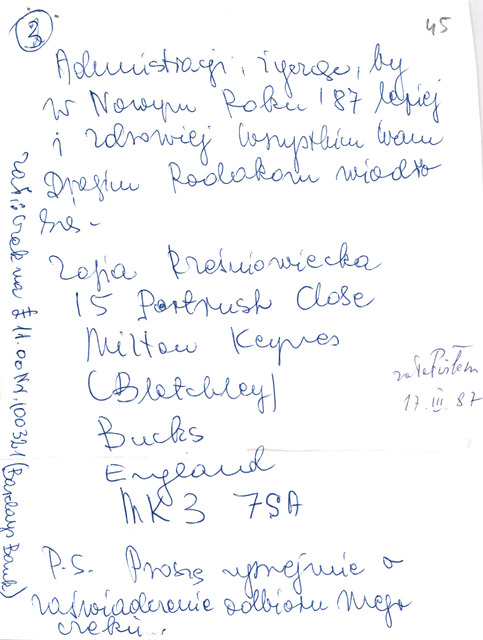 3
45
Administracji, życząc, by
w Nowym Roku '87 lepiej
i zdrowiej wszystkim Wam
Drogim Rodakom wiodło
się -
Zofia Kreśniowiecka
15 Portrush Close
Milton Keynes
(Bletchley)
Bucks
England
MK3 7SA
P.S. Proszę uprzejmie o
zaświadczenie odbioru mego
czeku...
Zał. czek na £ 11.00 Nr. 100321 (Barclays Bank)
17.III.87